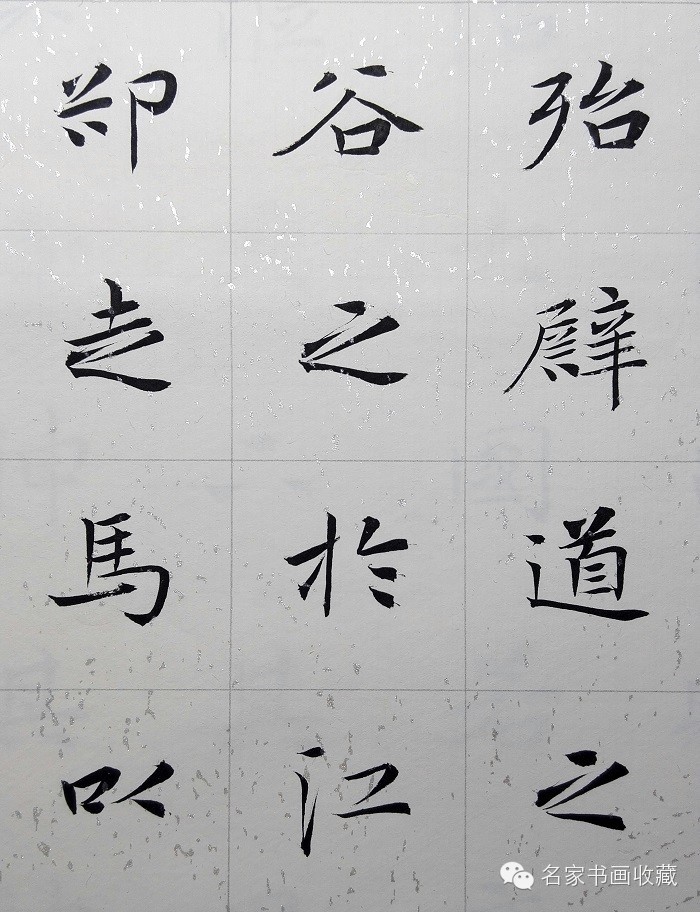 殆譬道之
谷之於江
卻走馬以
名家书画收藏